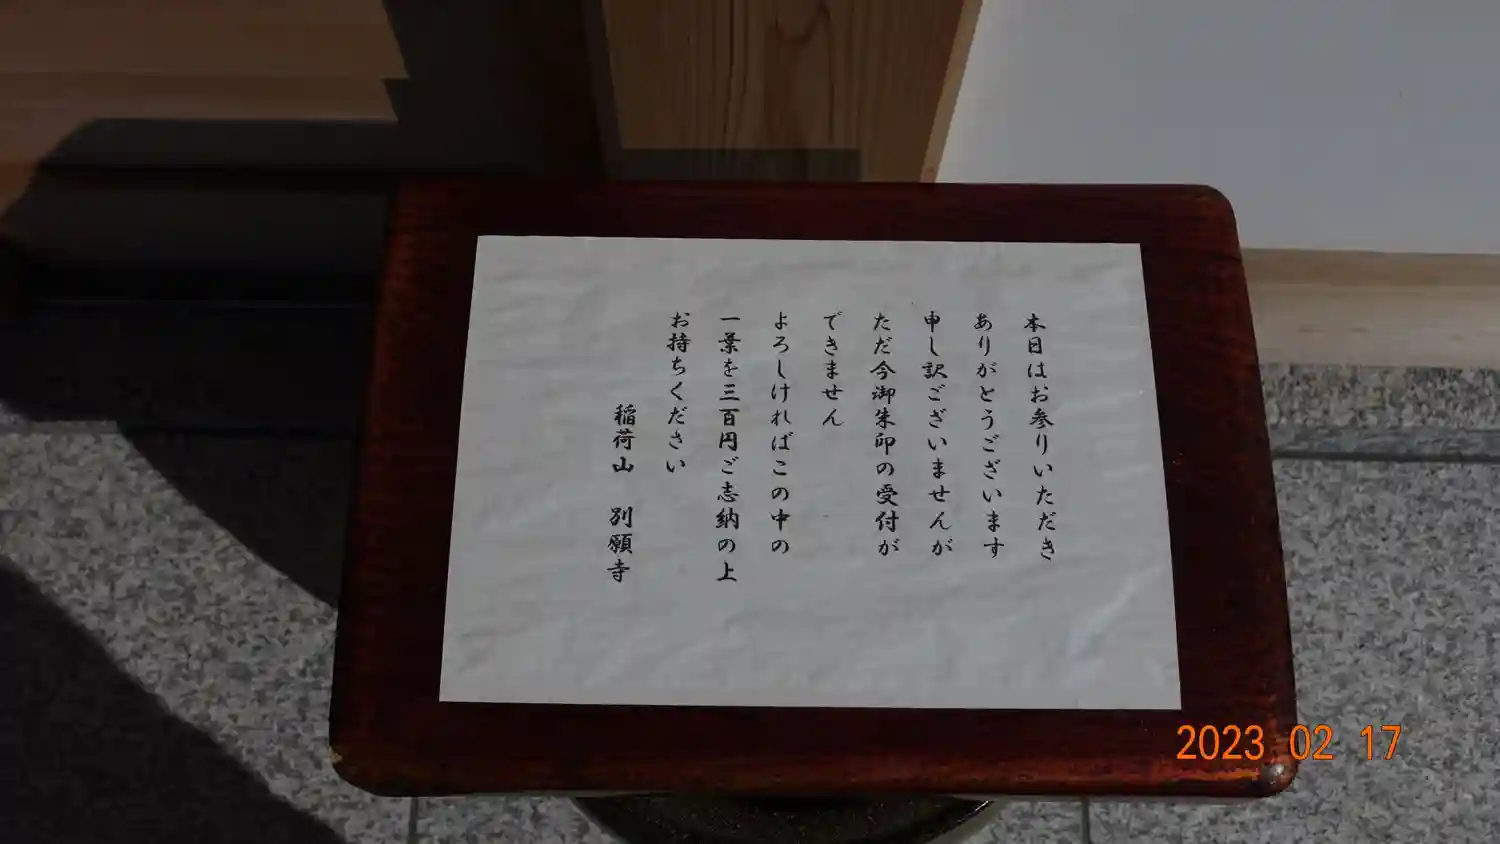 本日はお参りいただき
ありがとうございます
申し訳ございませんが
ただ今御朱印の受付が
できません
よろしければこの中の
一葉を三百円ご志納の上
お持ちください
稲荷山 別願寺
2023 02 17